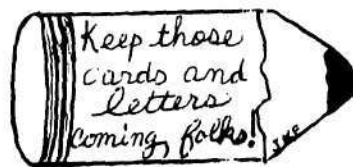 Keep those
cards and
letters
coming, folks!